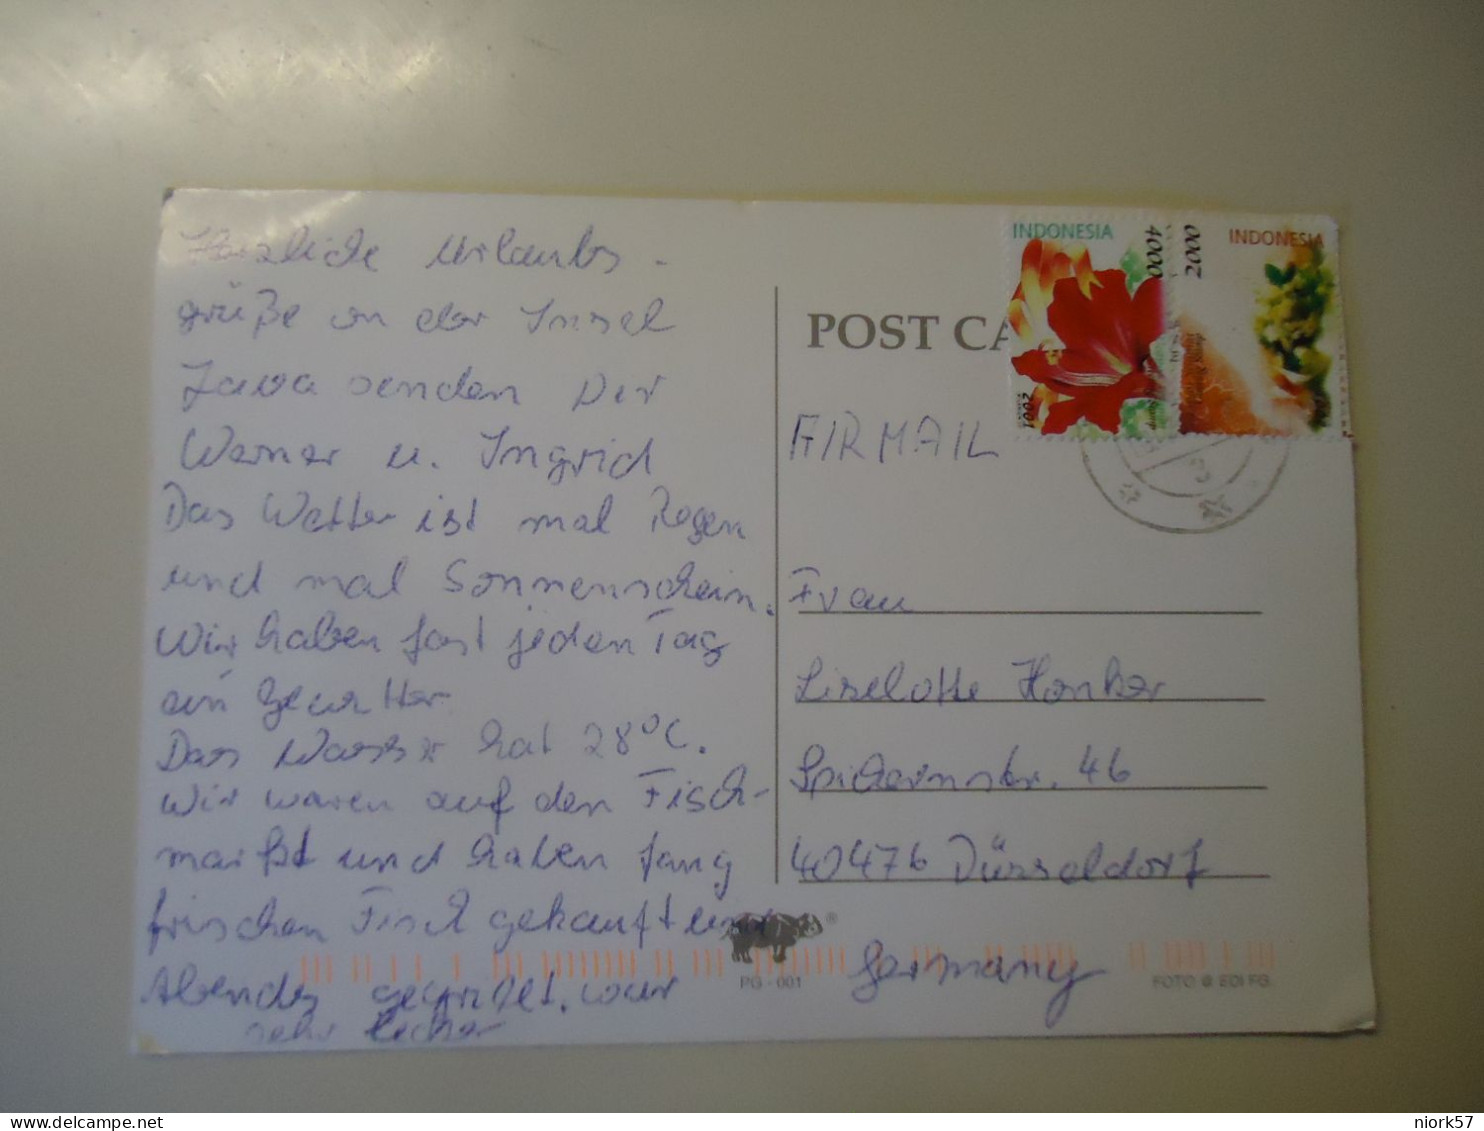 Herzliche Urlaubs-
grüße von der Insel
Java senden Dir
Werner u. Ingrid
Das Wetter ist mal Regen
und mal Sonnenschein.
Wir haben fast jeden Tag
ein Gewitter
Das Wasser hat 28°C.
Wir waren auf den Fisch-
markt und haben fang
frischen Fisch gekauft und
Abends gegrillt. war
sehr lecker
POST CA
INDONESIA
4000
2001
2000
INDONESIA
AIRMAIL
Frau
Liselotte Honker
Spichernstr. 46
40476 Düsseldorf
Germany
®
PG - 001
FOTO @ EDI FG.
niork57